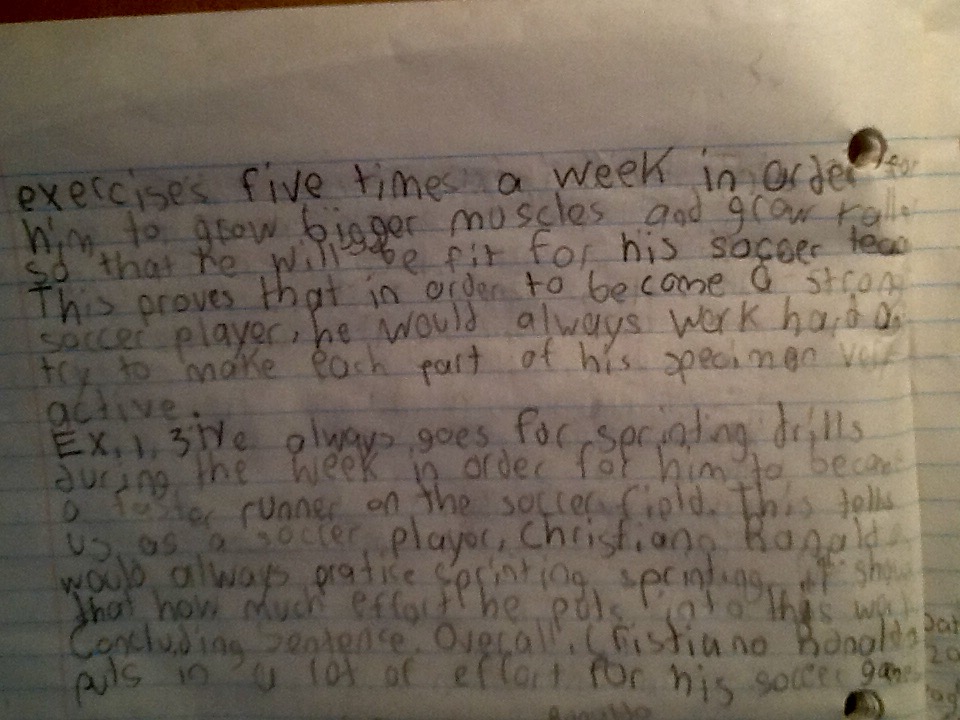 exercises five times a week in order for
him to grow bigger muscles and grow taller
so that he will be fit for his soccer team
This proves that in order to become a strong
soccer player, he would always work hard
try to make each part of his specimen very
active.
Ex. 1, 3 He always goes for sprinting drills
during the week in order for him to become
a faster runner on the soccer field. This tells
us, as a soccer player, Christiano Ronald
would always pratise sprinting sprinting, it show
that how much effort he puts into this
Concluding sentence. Overall, Cristiano Ronaldo
puts in a lot of effort for his soccer game